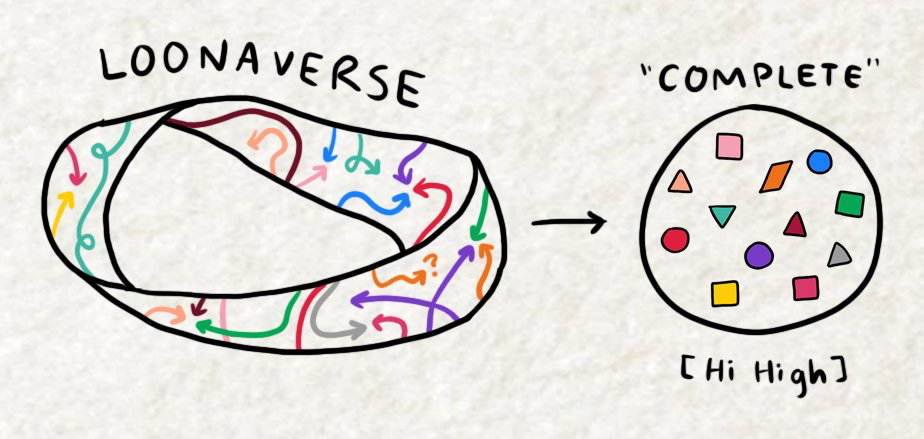 LOONAVERSE
"COMPLETE"
?
[Hi High]